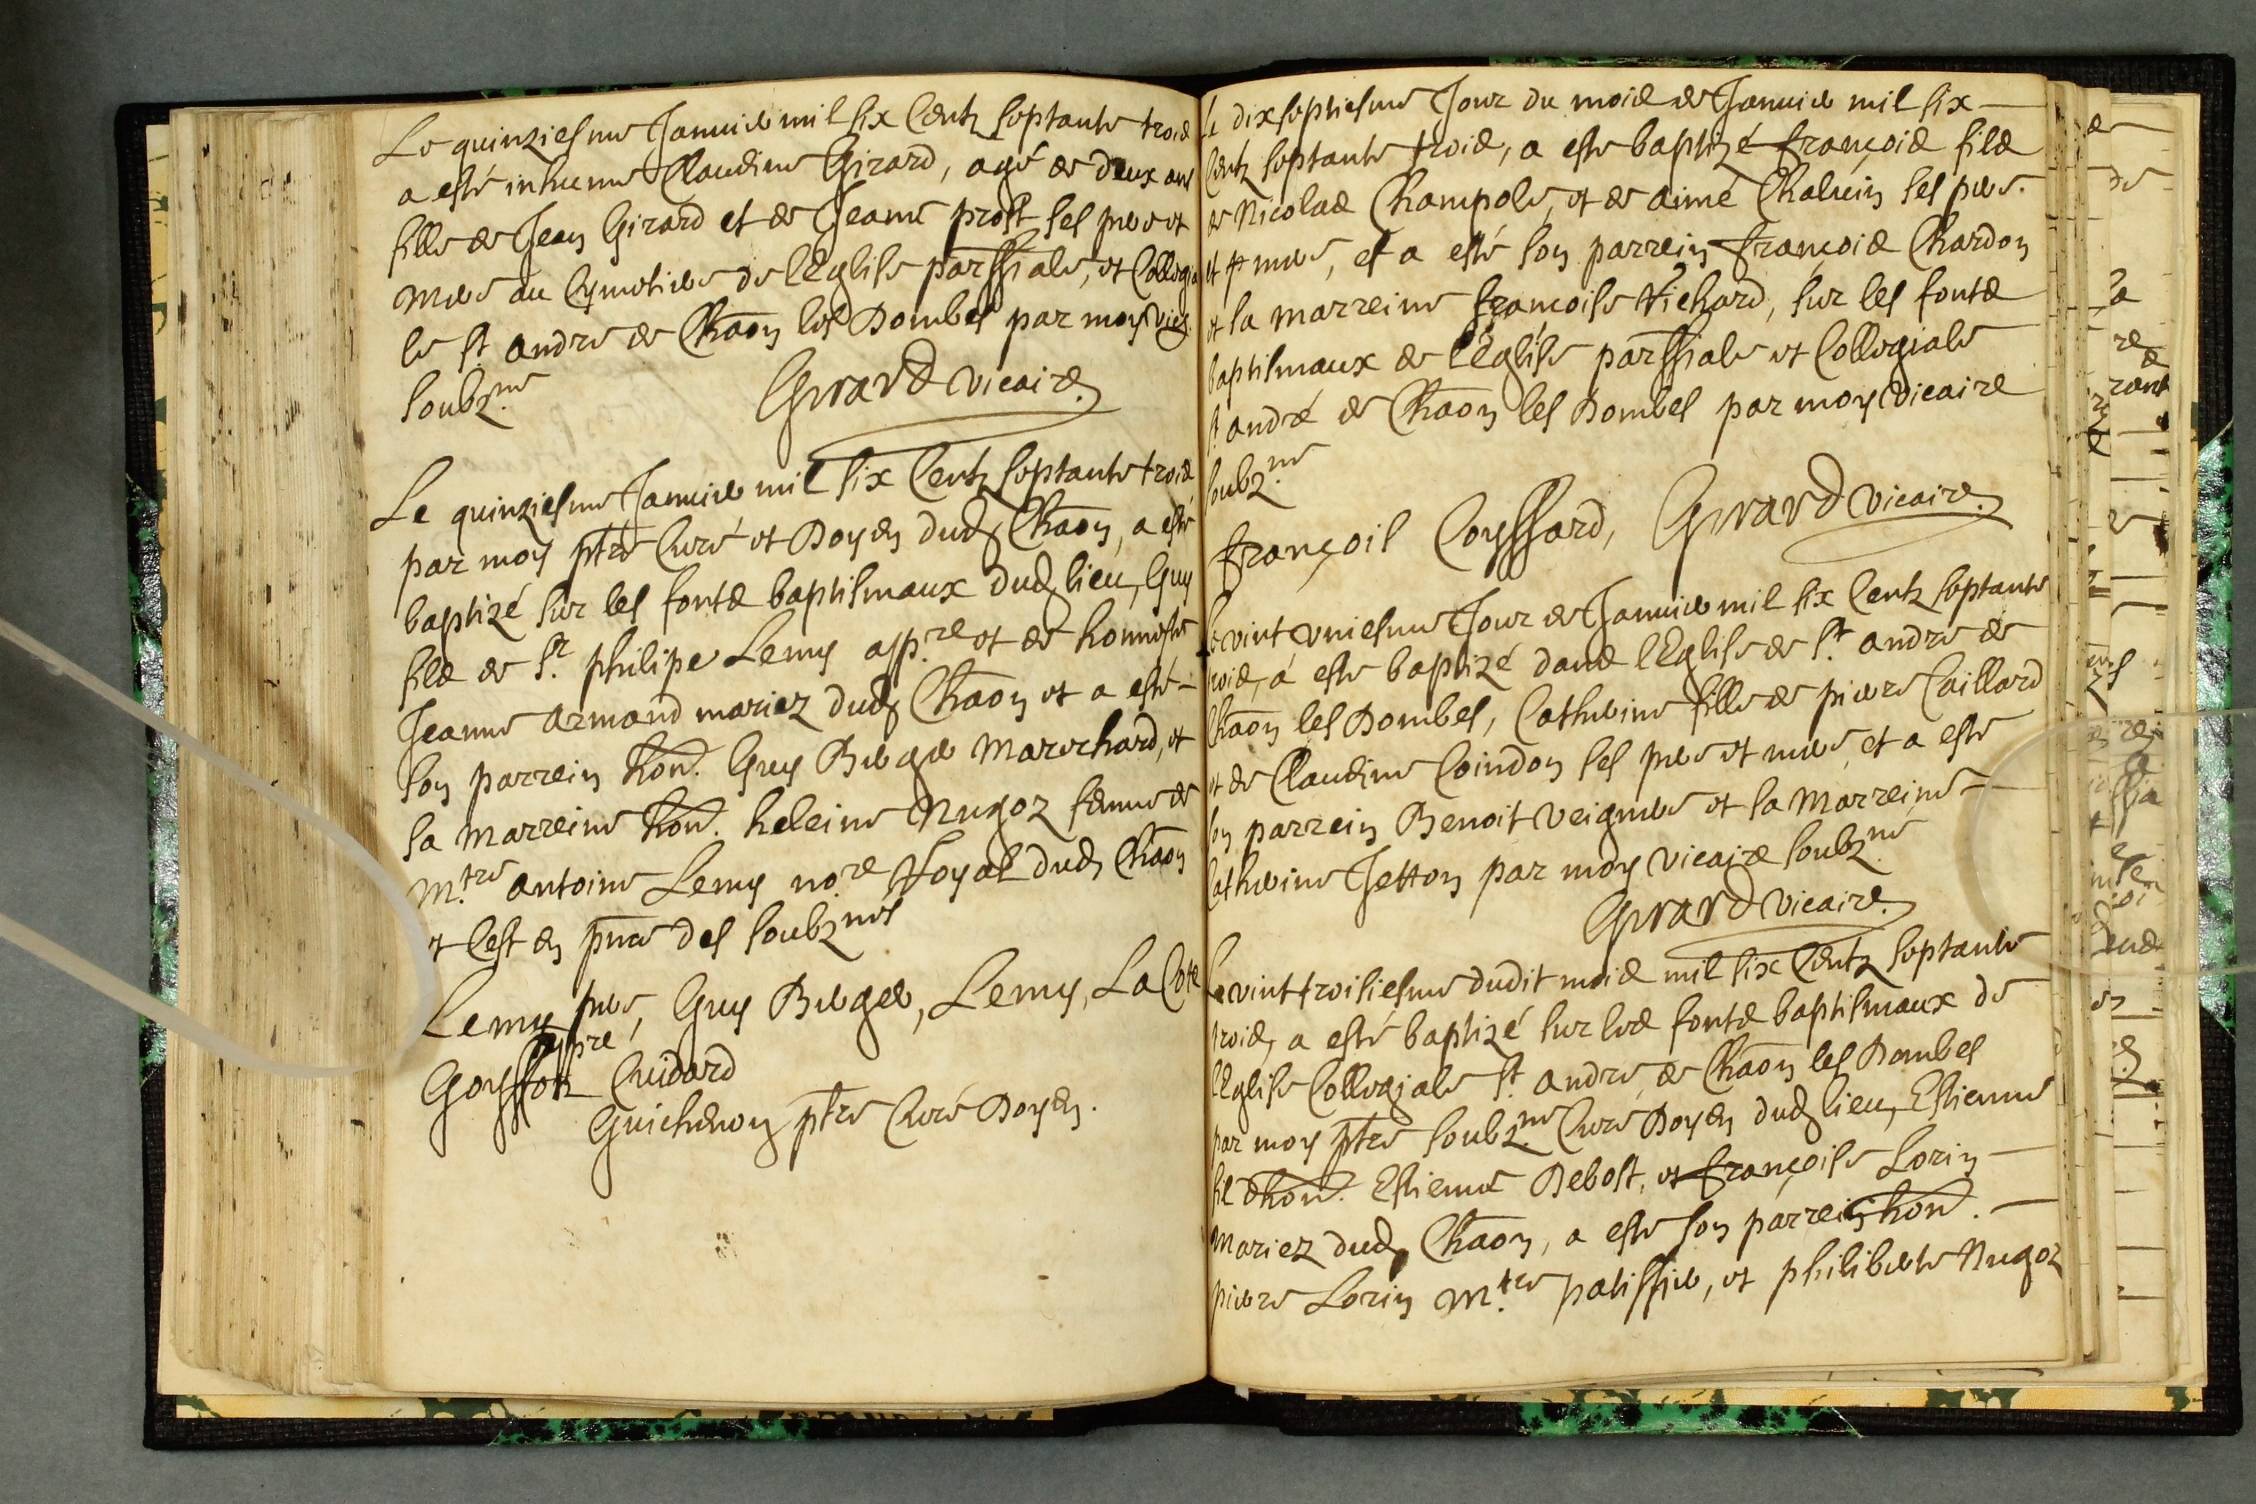 Le quinziesme Januier mil six Centz septante trois
a esté inhumé Claudine Girard, agé de deux ans
fille de Jean Girard et de Jeanne prost ses pere et
mere au Cymetiere de l'Eglise parssiale, et Collegia
le st andre de Chaōn les Dombes par moy vicʳᵉ
soubz.né
Girard vicaire
Le quinziesme Januier mil six Centz septante trois
par moy ptre Curé et Doyen dud Chaōn, a esté
baptizé sur les fonts baptismaux dud lieu, Guy
fils de Sr. philipe Lemy app.re et de honneste
Jeanne Armand mariez dud Chaōn et a esté -
son parrein hon. Guy Berger Marechard, et
sa marreine hon. heleine Nugoz femme de
M.tre antoine Lemy no.re Royal dud Chaōn
et C'est en pnce des soubz.nés
Lemy pere, Guy Berger, Lemy, La Cote
Goyffon Cuidard
Guichenon ptre Curé Doyen.
Le dixseptiesme Jour du mois de Januier mil six -
Centz septante trois, a esté baptizé françois fils
de Nicolas Champole, et de aimé Chaluin ses pere.
et mere, et a esté son parrein françois Chardon
et sa marreine françoise Richard, sur les fonts
baptismaux de l'Eglise parssiale et Collegiale
st andré de Chaōn les Dombes par moy vicaire
soubz.né
françois Coyssard, Girard vicaire
Le vint vniesme Jour de Januier mil six Centz septante
trois, a esté baptizé dans l'Eglise de St. andre de
Chaōn les Dombes, Catherine fille de pierre Caillard
et de Claudine Coindon ses pere et mere, et a esté
son parrein Benoit Veignere et sa Marreine -
Catherine Jetton par moy vicaire soubz.né
Girard vicaire
Le vint troisiesme dudit mois mil six Centz septante
trois, a esté baptizé sur les fonts baptismaux de
l'Eglise Collegiale St. andre, de Chaōn les Dombes
par moy ptre soubz.né Curé Doyen dud lieu, Estienne
fil d'hon. Estienne Debost, et françoise Lorin -
Mariez dud Chaōn, a esté son parrein hon. -
pierre Lorin M.tre patissier, et philiberte Nugoz